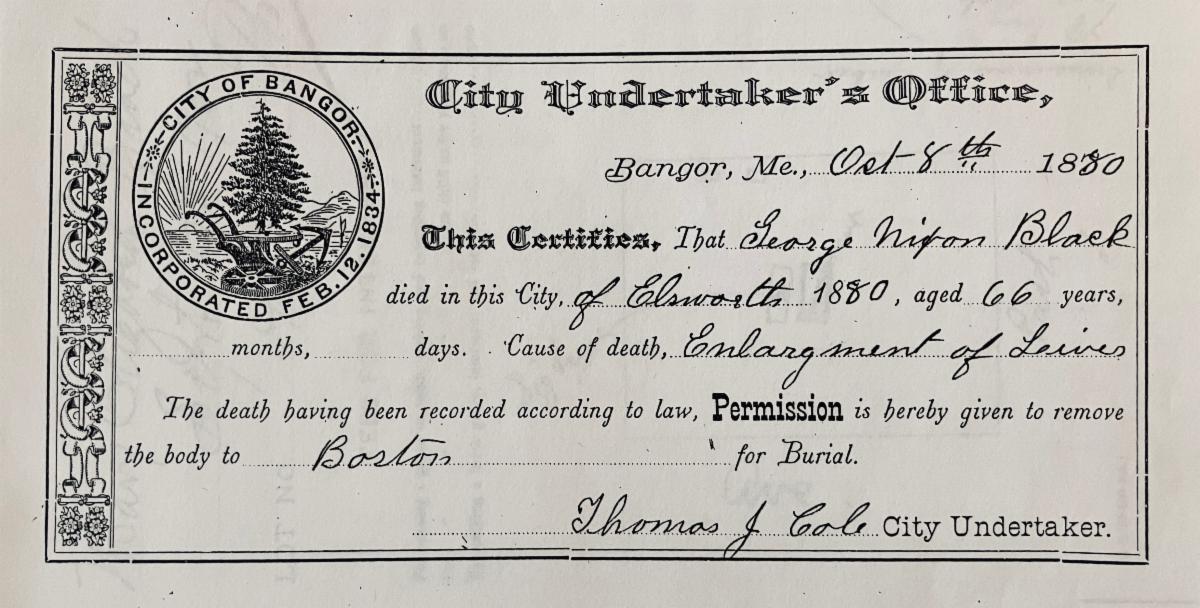 CITY OF BANGOR.
INCORPORATED FEB. 12. 1834
City Undertaker's Office,
Bangor, Me., Oct 8th 1880
This Certifies, That George Nixon Black
died in this City, of Elsworth 1880, aged 66 years,
months, days. Cause of death, Enlargment of Leiver
The death having been recorded according to law, Permission is hereby given to remove
the body to Boston for Burial.
Thomas J Cole City Undertaker.